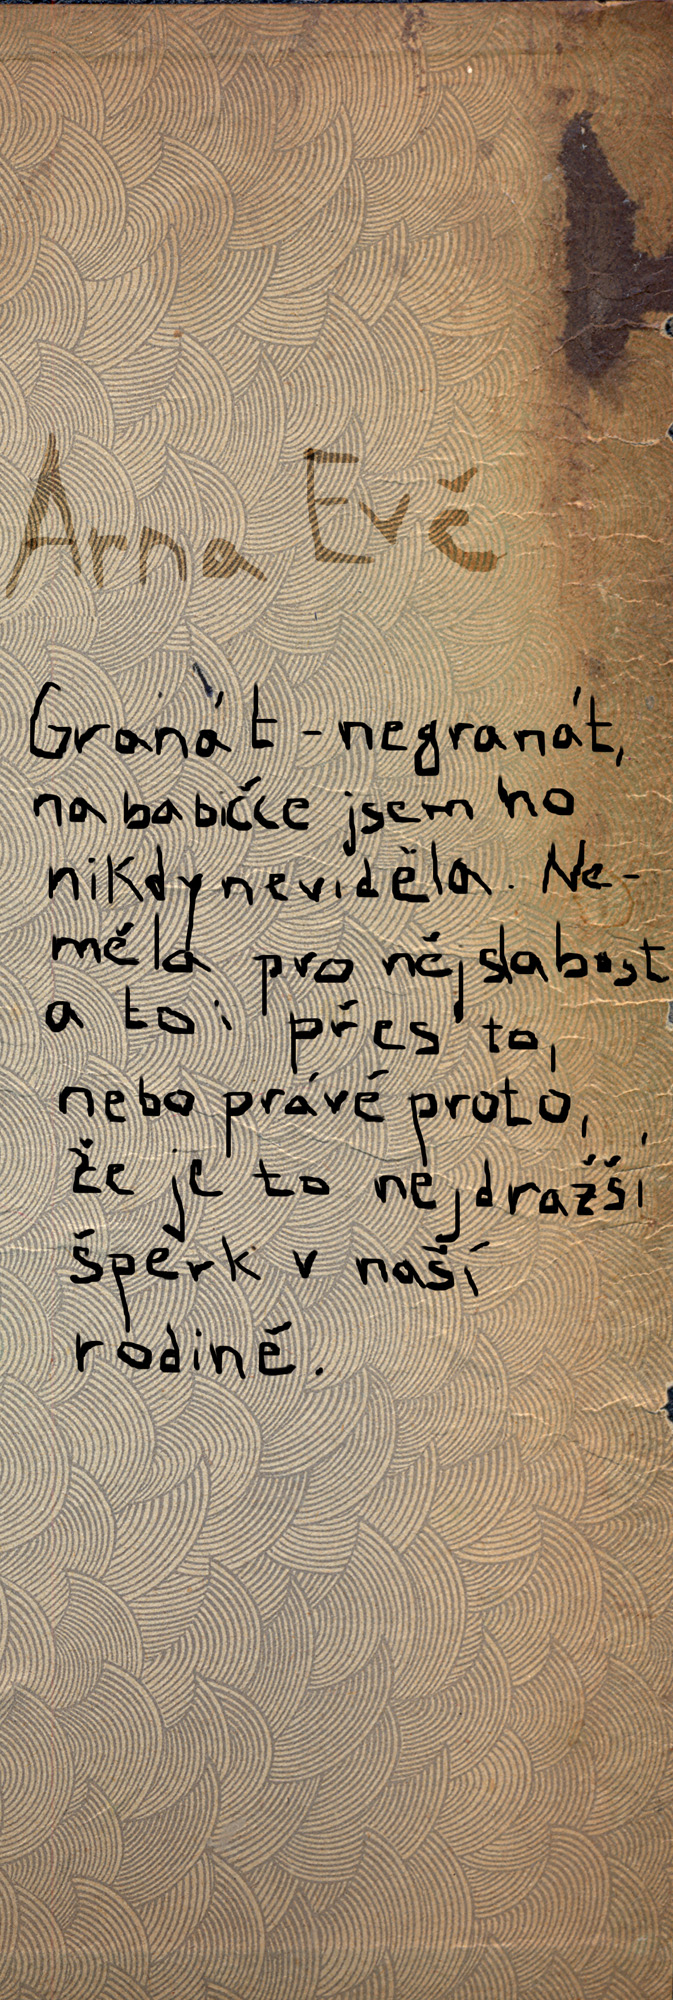 Arna Evě
Granát - negranát,
na babičce jsem ho
nikdy neviděla. Ne-
měla pro něj slabost
a to i přes to,
nebo právě proto,
že je to nejdražší
šperk v naší
rodině.